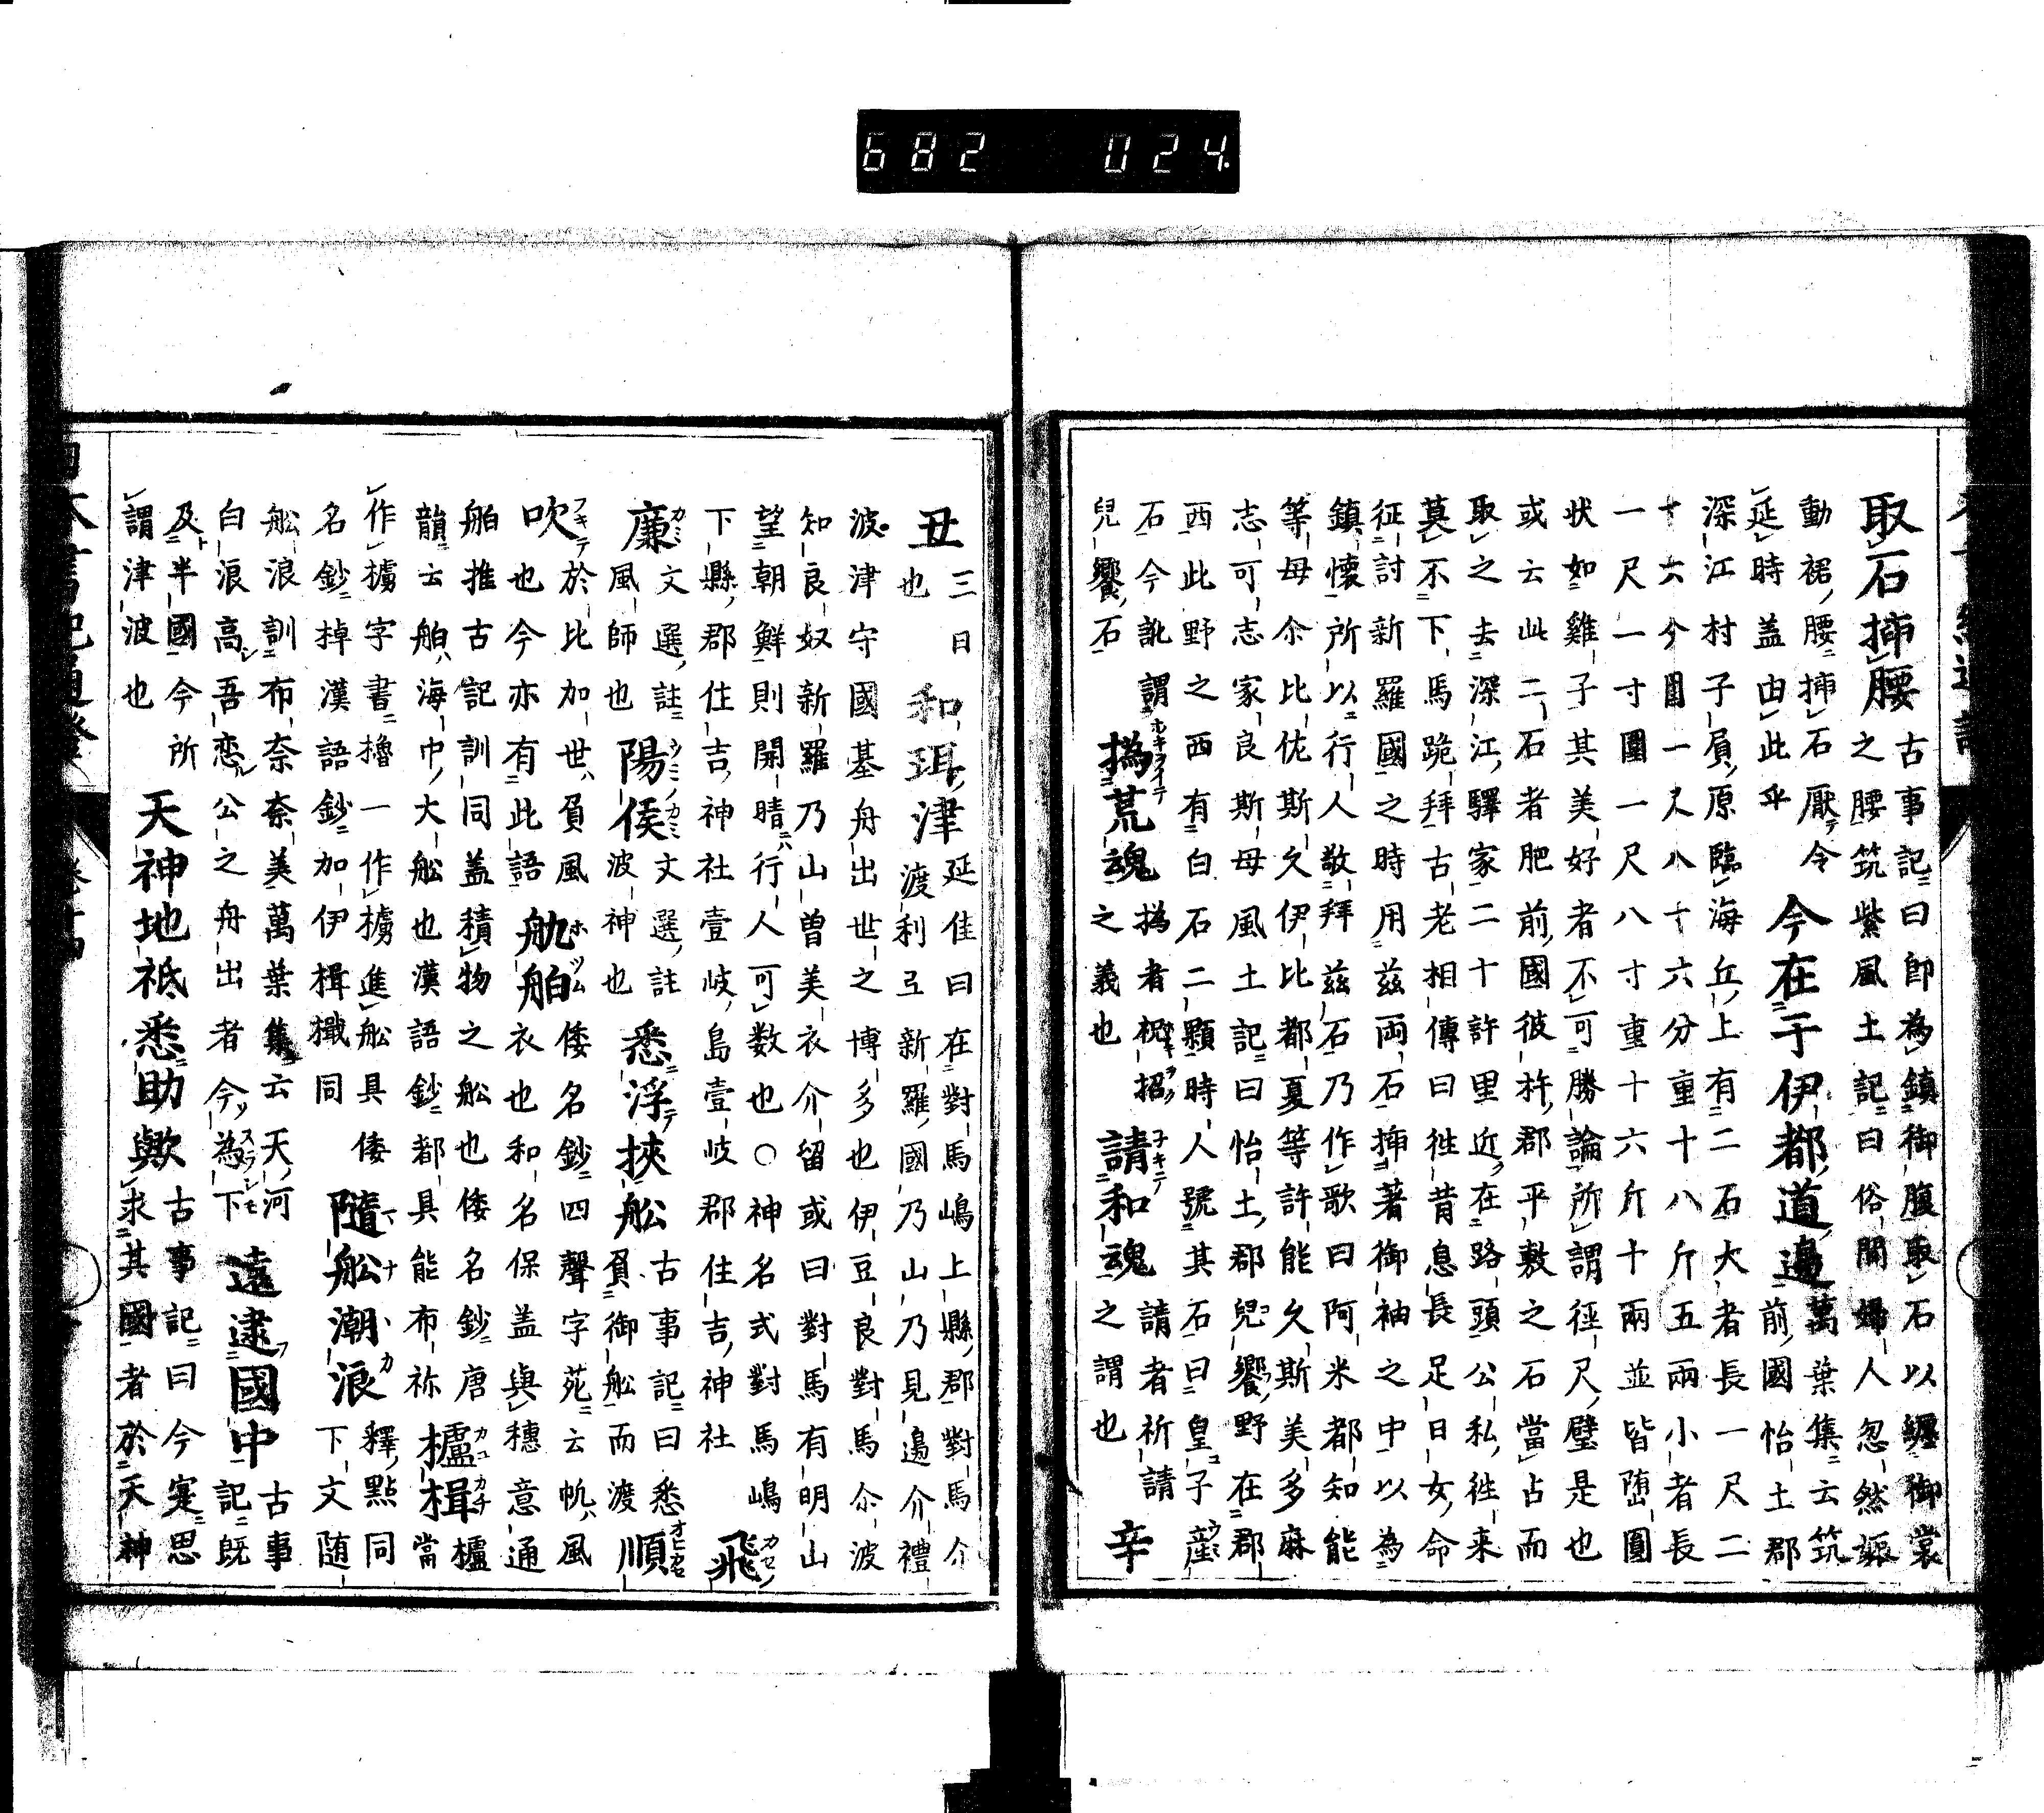 682 024
取石挿腰 古事記曰即為鎮御腹取石以纏御裳
之腰筑紫風土記曰俗間婦人忽然娠
動裙腰挿石厭令
延時蓋由此乎 今在于伊都道邊 萬葉集云筑
前國怡土郡
深江村子負原臨海丘上有二石大者長一尺二
寸六分圍一尺八寸六分重十八斤五兩小者長
一尺一寸圍一尺八寸重十六斤十兩並皆堕圓
状如雞子其美好者不可勝論所謂徑尺璧是也
或云此二石者肥前國彼杵郡平敷之石當占而
取之去深江驛家二十許里近在路頭公私徃来
莫不下馬跪拜古老相傳曰徃昔息長足日女命
征討新羅國之時用兹兩石挿著御袖之中以為
鎮懐所以行人敬拜兹石乃作歌曰阿米都知能
等母尒比佐斯久伊比都夏等許能久斯美多麻
志可志家良斯母風土記曰怡土郡兒饗野在郡
西此野之西有白石二顆時人號其石曰皇子産
石今訛謂
兒饗石 撝荒魂 撝者祝招
之義也 請和魂 請者祈請
之謂也 辛
丑 三日
也 和珥津 延佳曰在對馬嶋上縣郡對馬介
渡利㢧新羅國乃山乃見邊介禮
波津守國基舟出世之博多也伊豆良對馬尒波
知良奴新羅乃山曽美衣介留或曰對馬有明山
望朝鮮則開晴行人可数也○神名式對馬嶋
下縣郡住吉神社壹岐島壹岐郡住吉神社 飛
廉 文選註
風師也 陽侯 文選註
波神也 悉浮挾舩 古事記曰悉
負御舩而渡 順
吹 於比加世負風
也今亦有此語 䑺舶 倭名鈔四聲字苑云帆風
衣也和名保蓋與穗意通
舶推古記訓同蓋積物之舩也倭名鈔唐
韻云舶海中大舩也漢語鈔都具能布祢 櫨楫 當
櫨
作㯭字書櫓一作㯭進舩具倭
名鈔棹漢語鈔加伊楫檝同 隨舩潮浪 釋點同
下文随
舩浪訓布奈奈美萬葉集云天河
白浪高吾恋公之舟出者今為下 遠逮國中 古事
記既
及半國今所
謂津波也 天神地祇悉助歟 古事記曰今寔思
求其國者於天神